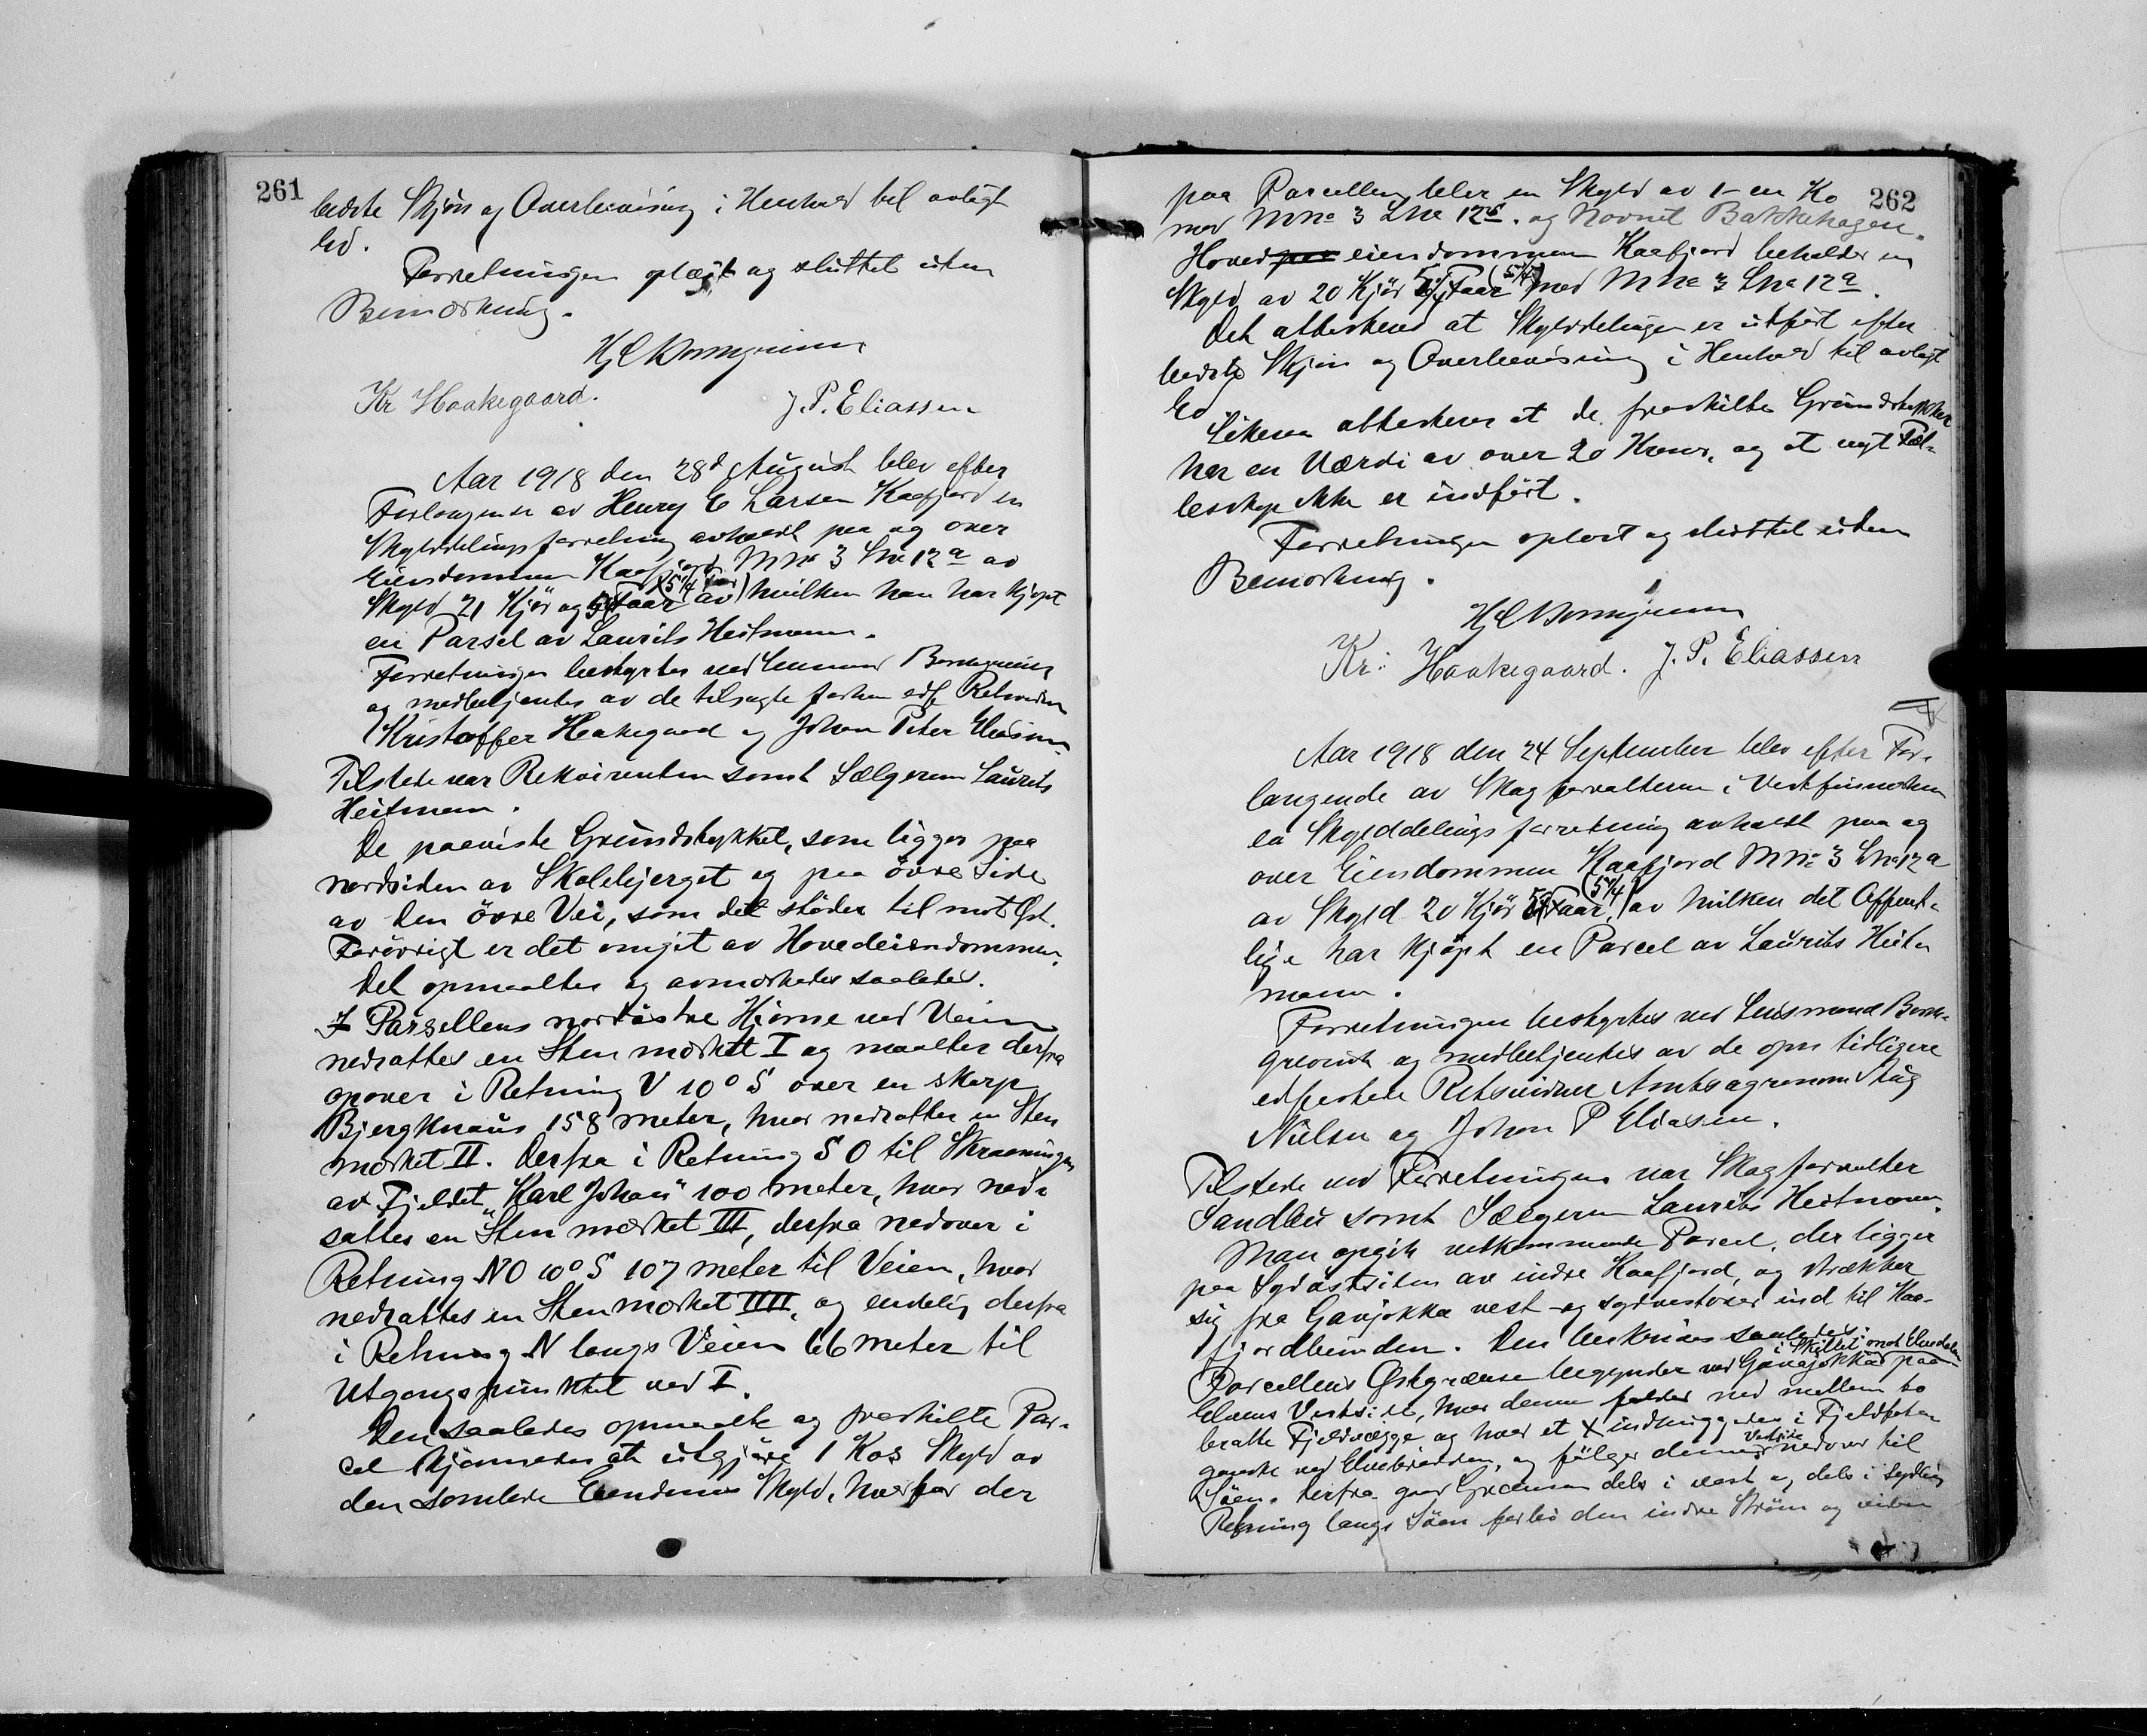 261
bedste Skjön og Overbevisning i Henhold til avlagt
Ed.
Forretningen oplæst og sluttet uten
Bemærkning.
Kr Haakegaard. J. P. Eliassen
Aar 1918 den 28d August blev efter
Forlangende av Henry E Larsen Kaafjord en
Skylddelingsforretning avholdt paa og over
Eiendommen Kaafjord M No 3 Lno 12a av
Skyld 21 Kjör og (5 1/4 Faar) av hvilken han har kjöpt
en Parsel av Laurits Heitmann.
Forretningen bestyrtes ved Lensmand
og medbetjentes av de tilsagte forhen edf. Retsvidner
Kristoffer Haakegaard og Johan Peter Eliassen.
Tilstede var Rekvirenten samt Sælgeren Laurits
Heitmann.
De paaviste Grundstykket, som ligger paa
nordsiden av Skolebjerget og paa övre Side
av den övre Vei, som det stöder til mot Öst.
Forövrigt er det omgit av Hovedeiendommen.
Det opmaaltes og avmerkedes saaledes.
I Parsellens nordöstre Hjörne ved Veien
nedsattes en Sten merket I og maaltes derfra
opover i Retning V 10° S over en skarp
Bjergknaus 158 meter, hvor nedsattes en Sten
merket II. Derfra i Retning S O til Skraaningen
av Fjeldet "Karl Johan" 100 meter, hvor ned-
sattes en Sten merket III, derfra nedover i
Retning NO 10° S 107 meter til Veien, hvor
nedsattes en Sten merket IIII, og endelig derfra
i Retning N langs Veien 66 meter til
Utgangspunktet ved I.
Den saaledes opmaalte og fraskilte Par-
cel skjönnedes at utgjöre 1 Kos Skyld av
den samlede Eiendoms Skyld, hvorfor der
262
paa Parcellen blev en Skyld av 1- en Ko
med M No 3 Lno 12 og Navnet Bakkehagen.
Hovedeiendommen Kaafjord beholder en
Skyld av 20 Kjör 5 1/4 Faar (5 1/4) med M No 3 Lno 12a.
Det attesteres at Skylddelingen er utfört efter
bedste Skjön og Overbevisning i Henhold til avlagt
Ed
Likesaa attesteres at de fraskilte Grundstykker
har en Værdi av over 20 Kroner, og at nyt Fæl-
leskap ikke er indfört.
Forretningen oplæst og sluttet uten
Bemerkning.
Kr. Haakegaard. J. P. Eliassen
Aar 1918 den 24 September blev efter For-
langende av Skogforvalteren i Vestfinmarken
en Skylddelingsforretning avholdt paa og
over Eiendommen Kaafjord M No 3 Lno 12a
av Skyld 20 Kjör 5 1/4 Faar (5 1/4) av hvilken det Offent-
lige har kjöpt en Parcel av Laurits Heit-
mann.
Forretningen bestyrtes ved Lensmand
og medbetjentes av de opn tidligere
edfestede Retsvidner Amtsagronom Stig
Nielsen og Johan P Eliasen.
Tilstede ved Forretningen var Skogforvalter
Sandbu samt Sælgeren Laurits Heitmann.
Man opgik vedkommende Parcel, der ligger
paa Sydöstsiden av indre Kaafjord, og strækker
sig fra Gavjokka vest- og sydvestover ind til Kaa-
fjordbunden. Den beskrives saaledes:
Parcellens Östgrænse begynder ved Gavajokka i Skillet mot Elvedalen paa
Elvens Vestside, hvor denne falder ned mellem to
bratte Fjeldvægge og hvor et X indhugges i Fjeldfoten
ganske ved Elvebredden, og fölger dennes Vestside nedover til
Söen. Derfra gaar Grænsen dels i vest og dels i sydlig
Retning langs Söen forbi den indre Ström og viden